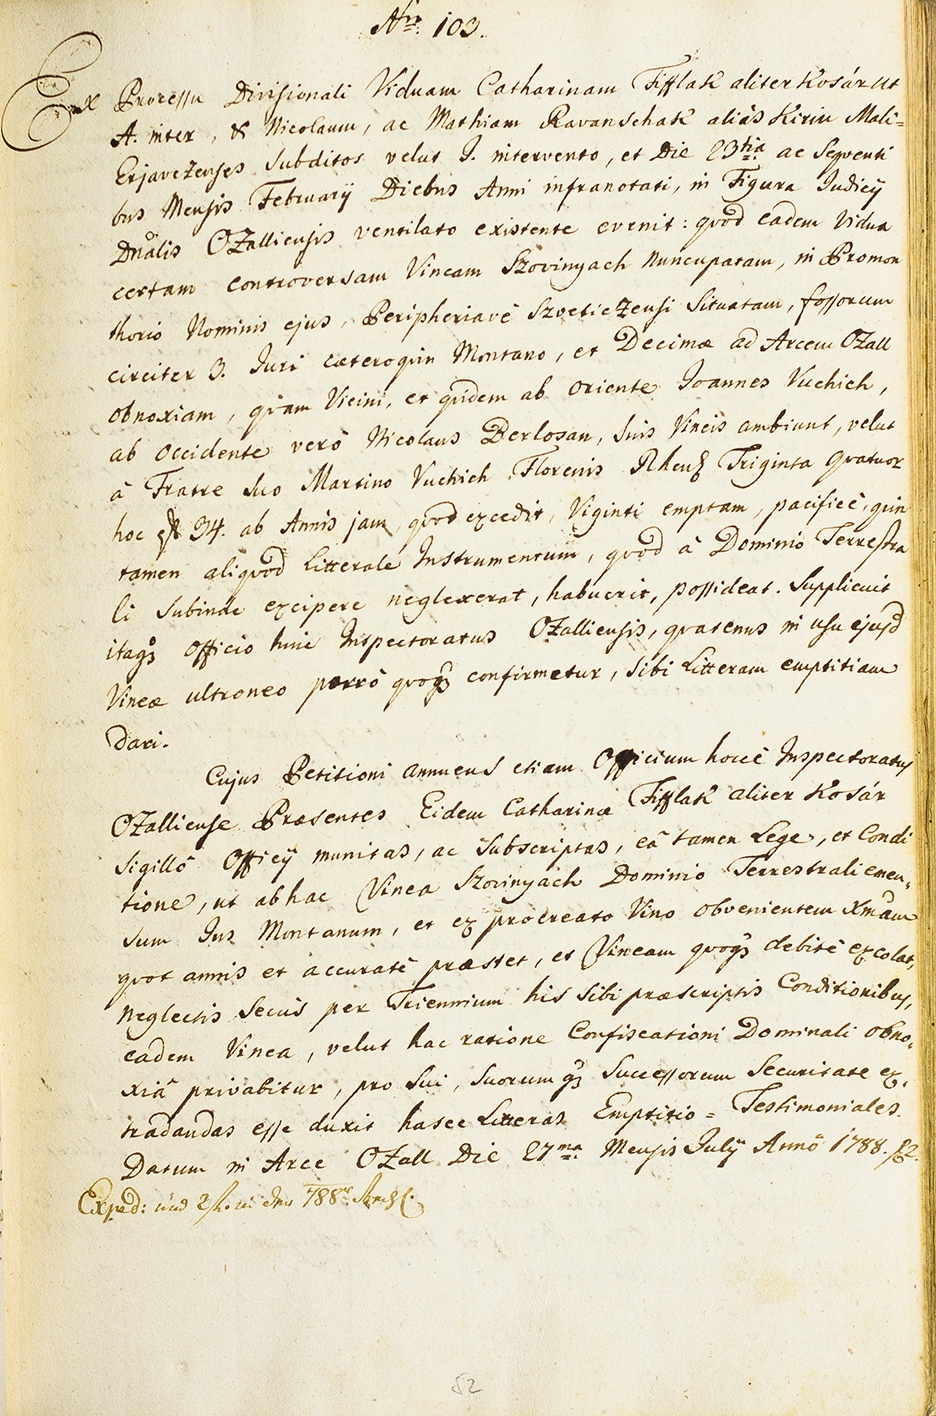 Nro. 103.
Ex Processu Divisionali Viduam Catharinam Fifflak aliter Kosár ut
A. inter, & Nicolaum, ac Mathiam Ravanschak aliàs Kirin Mali-
Erjavezenses Subditos velut I. intervento, et Die 23tia ac Sequenti
bus Mensis Februarij Diebus Anni infranotati, in Figura Judicij
Dnalis OZalliensis ventilato existente evenit: quòd eadem Vidua
certam controversam Vineam Szovinyach nuncupatam, in Promon
thorio Nominis ejus, Peripheriavè SzvetieZensi Situatam, fossorum
circiter 3. Juri caeteroquin Montano, et Decimae ad Arcem OZall
obnoxiam, quam Vicini, et quidem ab oriente Joannes Vuchich,
ab occidente verò Nicolaus Berlosan, suis Vineis ambiunt, velut
à Fratre suo Martino Vuchich Florenis Rhen Triginta quatuor
hoc est 34. ab Annis jam, quod excedit, Viginti emptam, pacificè, quin
tamen aliquod Litterale Instrumentum, quòd à Dominio Terrestra
li Subinde excipere neglexerat, habuerit, possideat. Supplicuit
itaq3 Officio huic Inspectoratus OZalliensis, quatenus in usu ejusd
Vineae ultroneo porrò quoq3 confirmetur, sibi Litteram emptitiam
dari.
Cujus Petitioni annuens etiam Officium hocce Inspectoratus
OZalliense Praesentes Eidem Catharinae Fifflak aliter Kosár
Sigillô Officij munitas, ac Subscriptas, eâ tamen Lege, et Condi
tione, ut ab hac Vinea Szovinyach Dominio Terrestrali emen-
sum Jus Montanum, et ex procreato Vino obvenientem Xmam
quot annis et accuratè praestet, et Vineam quoq3 debitè excolat,
neglectis Secùs per Triennium his sibi praescriptis Conditionibus,
eadem Vinea, velut hac ratione Confiscationi Dominali obno-
xiâ privabitur, pro sui, suorumq3 Successorum Securitate ex-
tradandas esse duxit hasce Litteras Emptitio = Testimoniales.
Datum in Arce OZall Die 27ma Mensis Julij Annô 1788.
Exped: und 788
52